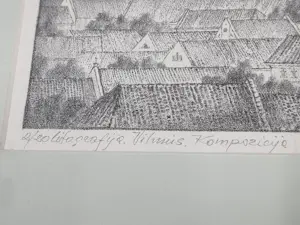 a/colotografija. Vilnius. Kompozicija